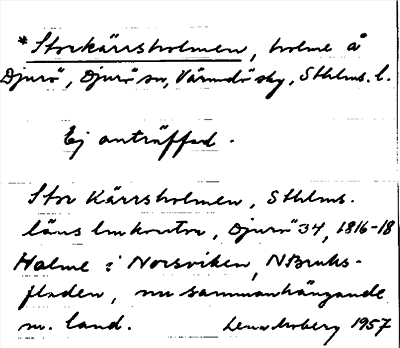 *Storkärrsholmen, holme å
Djurö, Djurö sn, Värmdö sky, Sthlms. l.
Ej anträffad.
Stor Kärrsholmen, Sthlms.
läns lmkontor, Djurö 34, 1816-18
Holme i Norsviken, N Bruks-
fladen, nu sammanhängande
m. land. Lena Moberg 1957